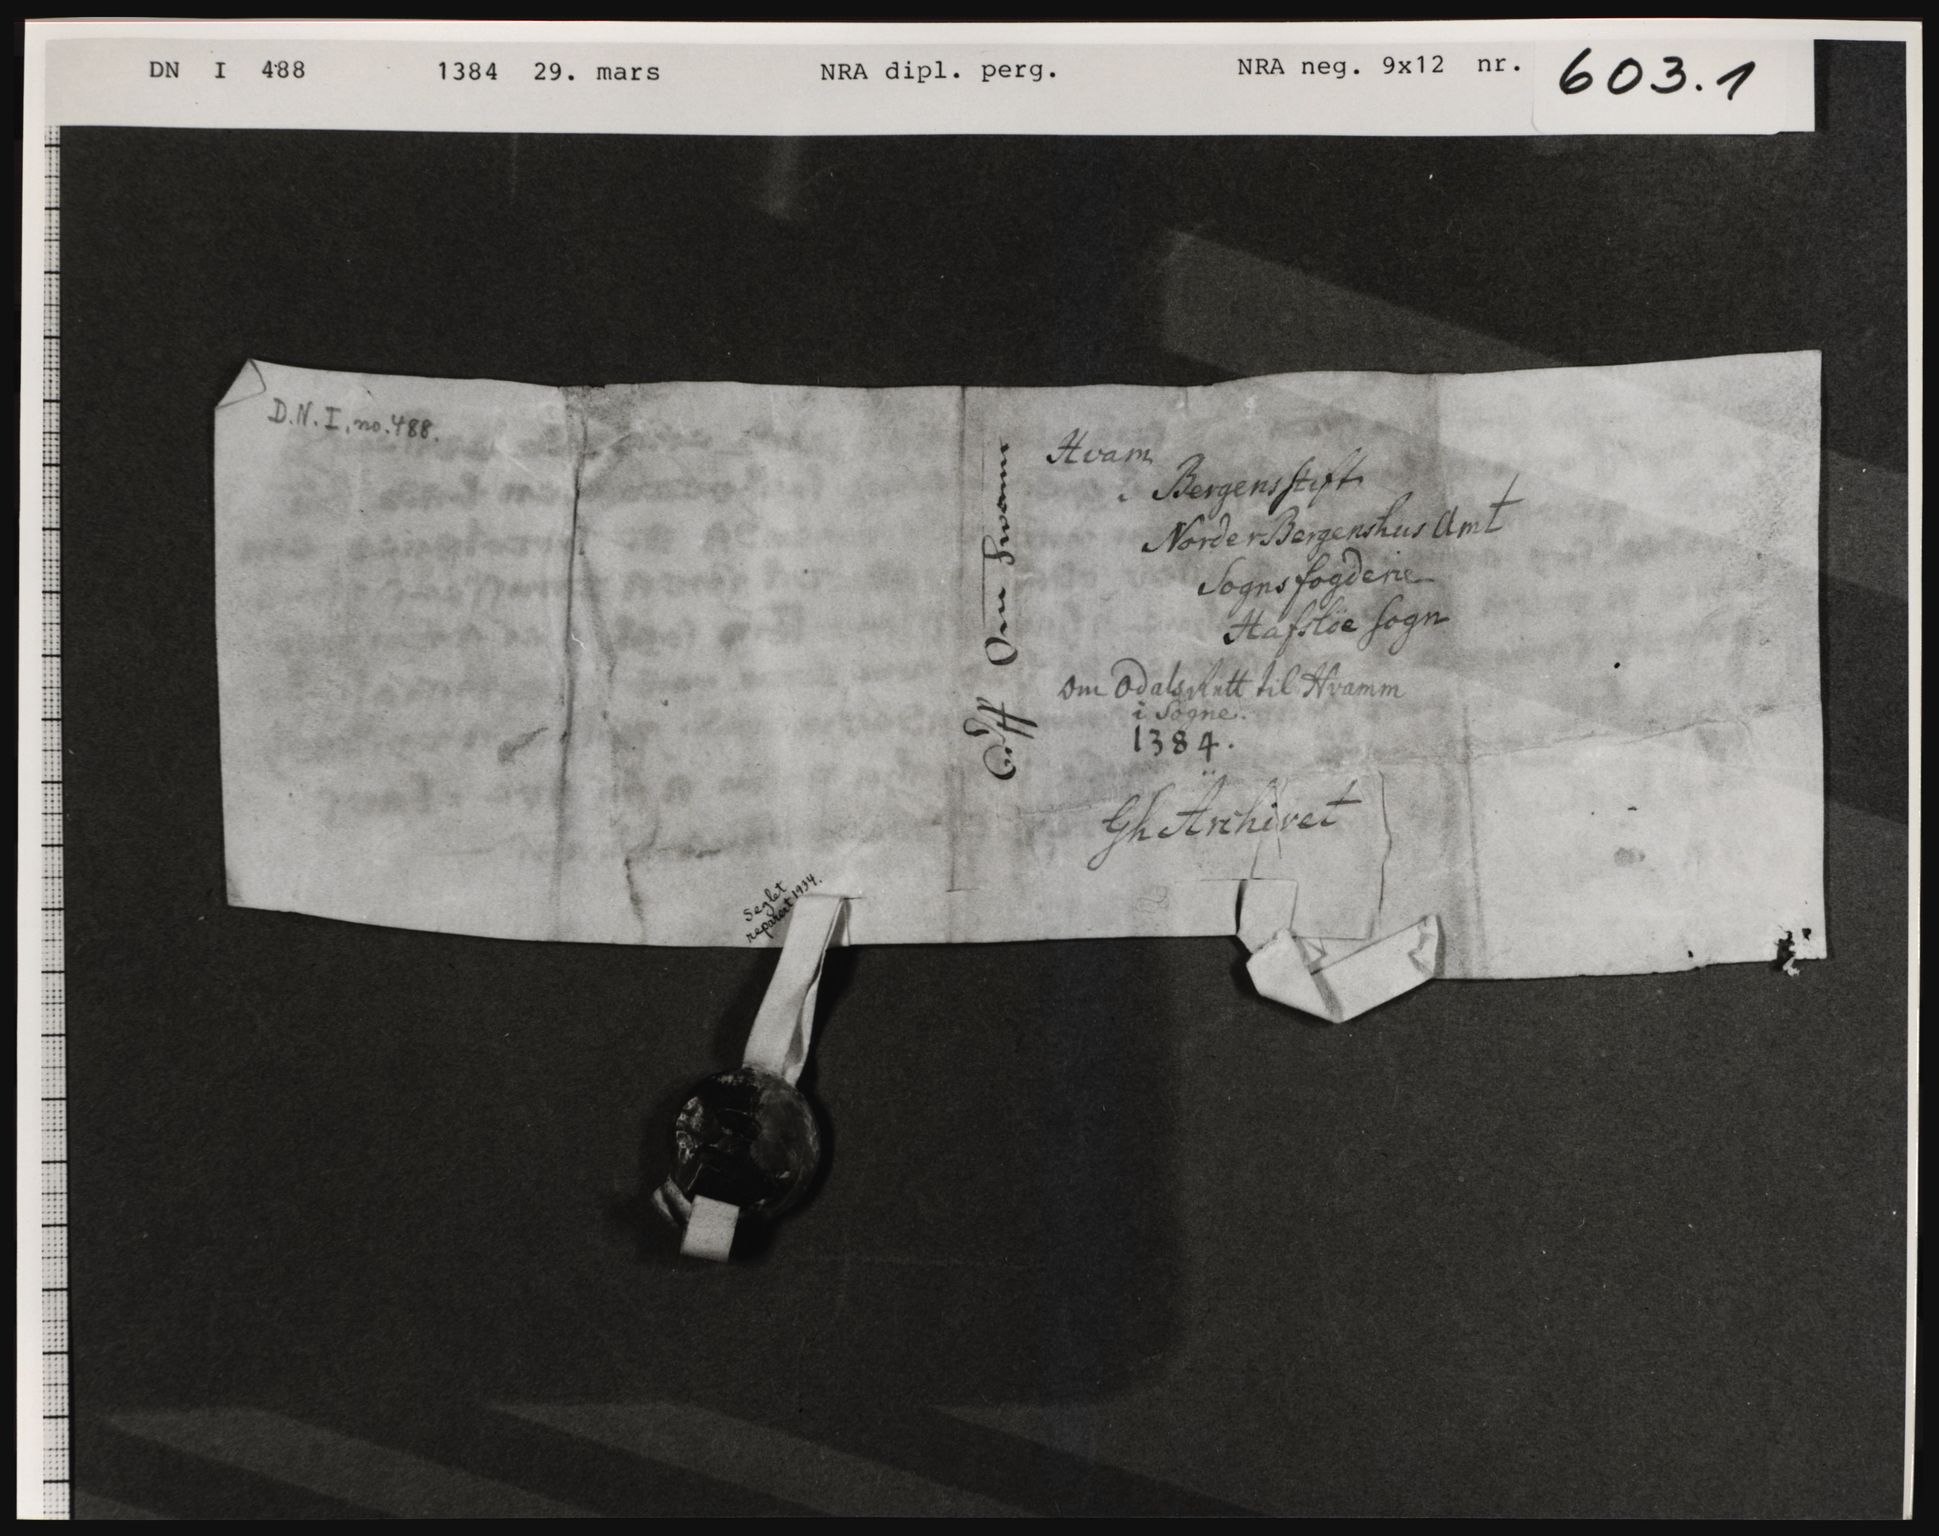 DN I 488 1384 29. mars NRA dipl. perg. NRA neg. 9x12 nr. 603.1
D.N.I, no. 488.
Om Hwamm
Hvam
i Bergens stift
Norder Bergenshus Amt
Sogns fogderie
Hafslöe Sogn
om Odalsrett til Hvamm
i Sogne.
1384.
Gh Archivet
Seglet
reparert 1934.